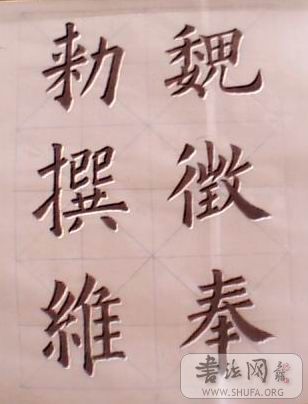 魏徵奉
勑撰維
書法网
WWW.SHUFA.ORG